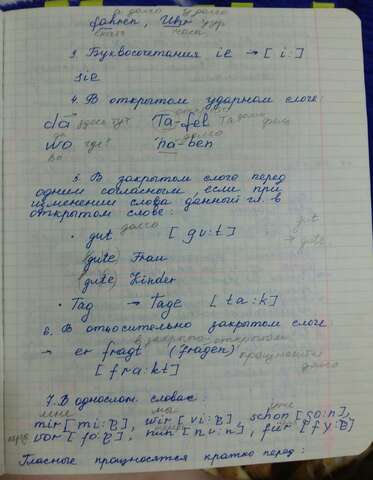 а долго у долго
fahren, Uhr ур
ехать часы
3. Буквосочетания ie → [i:]
sie
4. В открытом ударном слоге:
da здесь тут Ta-fel
да
wo где? ha-ben долго
во
5. В закрытом слоге перед
одним согласным, если при
изменении слова данный гл. в
открытом слове:
долго gut
· gut [gu:t] → gute
(gute) Frau
(gute) Kinder
· Tag → Tage [ta:k]
6. В относительно закрытом слоге
в закрыто открытом
→ er fragt (fragen) произносится
[fra:kt] долго
7. В однослож. словах:
мне мы уже
mir [mi:ɐ], wir [vi:ɐ], schon [ʃo:n],
vor [fo:ɐ], nun [nu:n], für [fy:ɐ]
Гласные произносятся кратко перед: